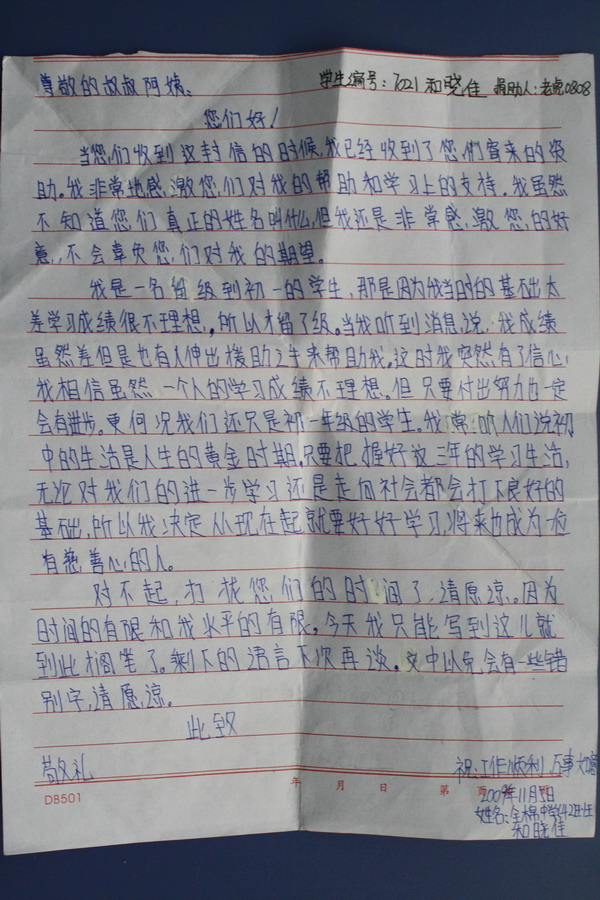 尊敬的叔叔阿姨: 学生编号:7021 和晓佳 捐助人:老虎0808
您们好!
当您们收到这封信的时候,我已经收到了您们寄来的资
助。我非常地感激您们对我的帮助和学习上的支持。我虽然
不知道您们真正的姓名叫什么,但我还是非常感激您的好
意,不会辜负您们对我的期望。
我是一名留级到初一的学生,那是因为我当时的基础太
差学习成绩很不理想,所以才留了级。当我听到消息说:我成绩
虽然差但是也有人伸出援助之手来帮助我。这时我突然有了信心,
我相信虽然一个人的学习成绩不理想。但只要付出努力也一定
会有进步。更何况我们还只是初一年级的学生。我常听人们说初
中的生活是人生的黄金时期。只要把握好这三年的学习生活,
无论对我们的进一步学习还是走向社会都会打下良好的
基础,所以我决定从现在起就要好好学习,将来也成为一位
有慈善心的人。
对不起,打扰您们的时间了,请原谅。因为
时间的有限和我水平的有限。今天我只能写到这儿就
到此搁笔了。剩下的语言下次再谈。文中以免会有一些错
别字,请原谅。
此致
敬礼 祝:工作顺利 万事如意
年 月 日 第 页
DB501 2009年11月5日
姓名:金棉中学142班
和晓佳